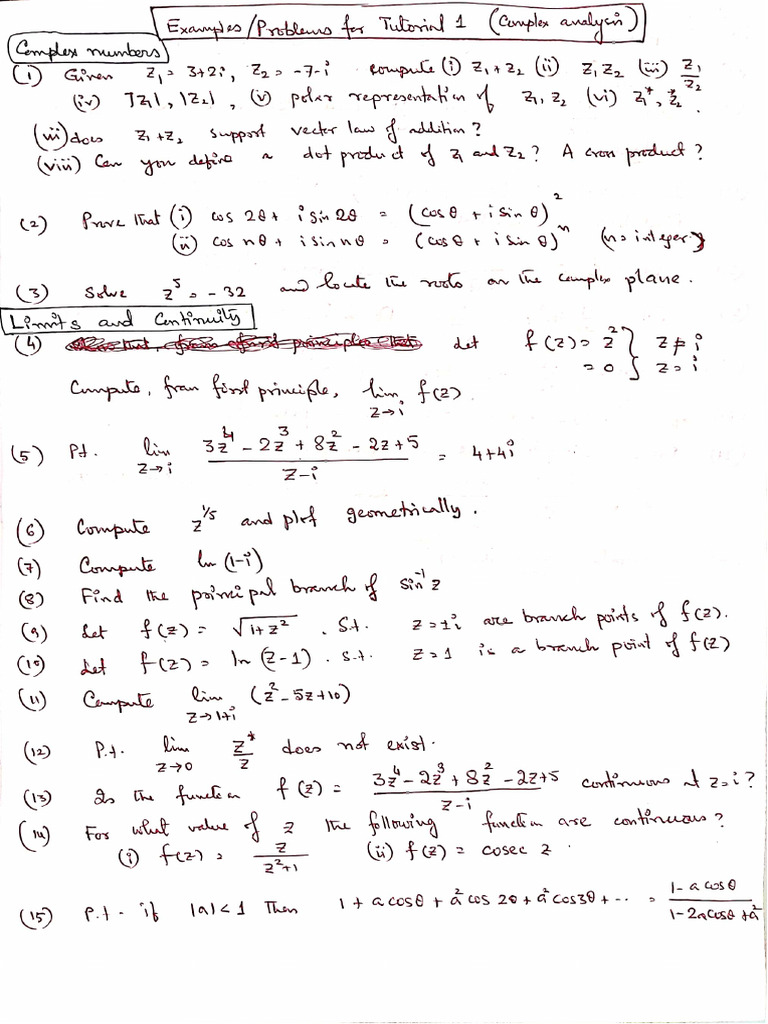 Examples/Problems for Tutorial 1 (Complex analysis)
Complex numbers
(1) Given z₁ = 3+2i, z₂ = -7-i compute (i) z₁+z₂ (ii) z₁z₂ (iii) z₁/z₂
(iv) |z₁|, |z₂|, (v) polar representation of z₁, z₂ (vi) z₁*, z₂*
(vii) does z₁+z₂ support vector law of addition?
(viii) Can you define a dot product of z₁ and z₂? A cross product?
(2) Prove that (i) cos 2θ + i sin 2θ = (cosθ + i sinθ)²
(ii) cos nθ + i sin nθ = (cosθ + i sinθ)ⁿ (n = integer)
(3) Solve z⁵ = -32 and locate the roots on the complex plane.
Limits and Continuity
(4) Let f(z) = z² } z ≠ i
= 0 } z = i
Compute, from first principle, lim z→i f(z)
(5) P.t. lim z→i (3z⁴ - 2z³ + 8z² - 2z + 5)/(z-i) = 4+4i
(6) Compute z^1/5 and plot geometrically.
(7) Compute ln(1-i)
(8) Find the principal branch of sin⁻¹z
(9) Let f(z) = √(1+z²). S.t. z=±i are branch points of f(z).
(10) Let f(z) = ln(z-1). S.t. z=1 is a branch point of f(z)
(11) Compute lim z→1+i (z²-5z+10)
(12) P.t. lim z→0 z*/z does not exist.
(13) Is the function f(z) = (3z⁴-2z³+8z²-2z+5)/(z-i) continuous at z=i?
(14) For what value of z the following function are continuous?
(i) f(z) = z/(z²+1) (ii) f(z) = cosec z.
(15) P.t. if |a|<1 Then 1 + a cosθ + a² cos 2θ + a² cos3θ + ·· = (1-a cosθ)/(1-2a cosθ + a²)